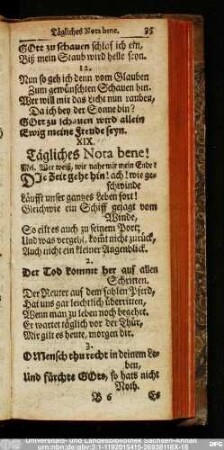 Tägliches Nota bene. 35
GOtt zu schauen schlof ich ein,
Biß mein Staub wird helle seyn.
12.
Nun so geh ich denn vom Glauben
Zum gewünschten Schauen hin.
Wer will mir das Licht nun rauben,
Da ich bey der Sonne bin?
GOtt zu schauen wird allein
Ewig meine Freude seyn.
XIX.
Tägliches Nota bene!
Mel. Wer weiß, wie nahe mir mein Ende?
DIe Zeit geht hin! ach! wie ge-
schwinde
Läufft unser gantzes Leben fort!
Gleichwie ein Schiff gejagt vom
Winde,
So eilt es auch zu seinem Port;
Und was vergeht, kömt nicht zurück,
Auch nicht ein kleiner Augenblick.
2.
Der Tod kommt her auf allen
Schritten.
Der Reuter auf dem fahlen Pferd,
Hat uns gar leichtlich überritten,
Wenn man zu leben noch begehrt.
Er wartet täglich vor der Thür,
Mir gilt es heute, morgen dir.
3.
O Mensch thu recht in deinem Le-
ben,
Und fürchte GOtt, so hats nicht
Noth.
B 6 Es
Universitäts- und Landesbibliothek Sachsen-Anhalt
urn:nbn:de:gbv:3:1-1192015415-269381116X-18